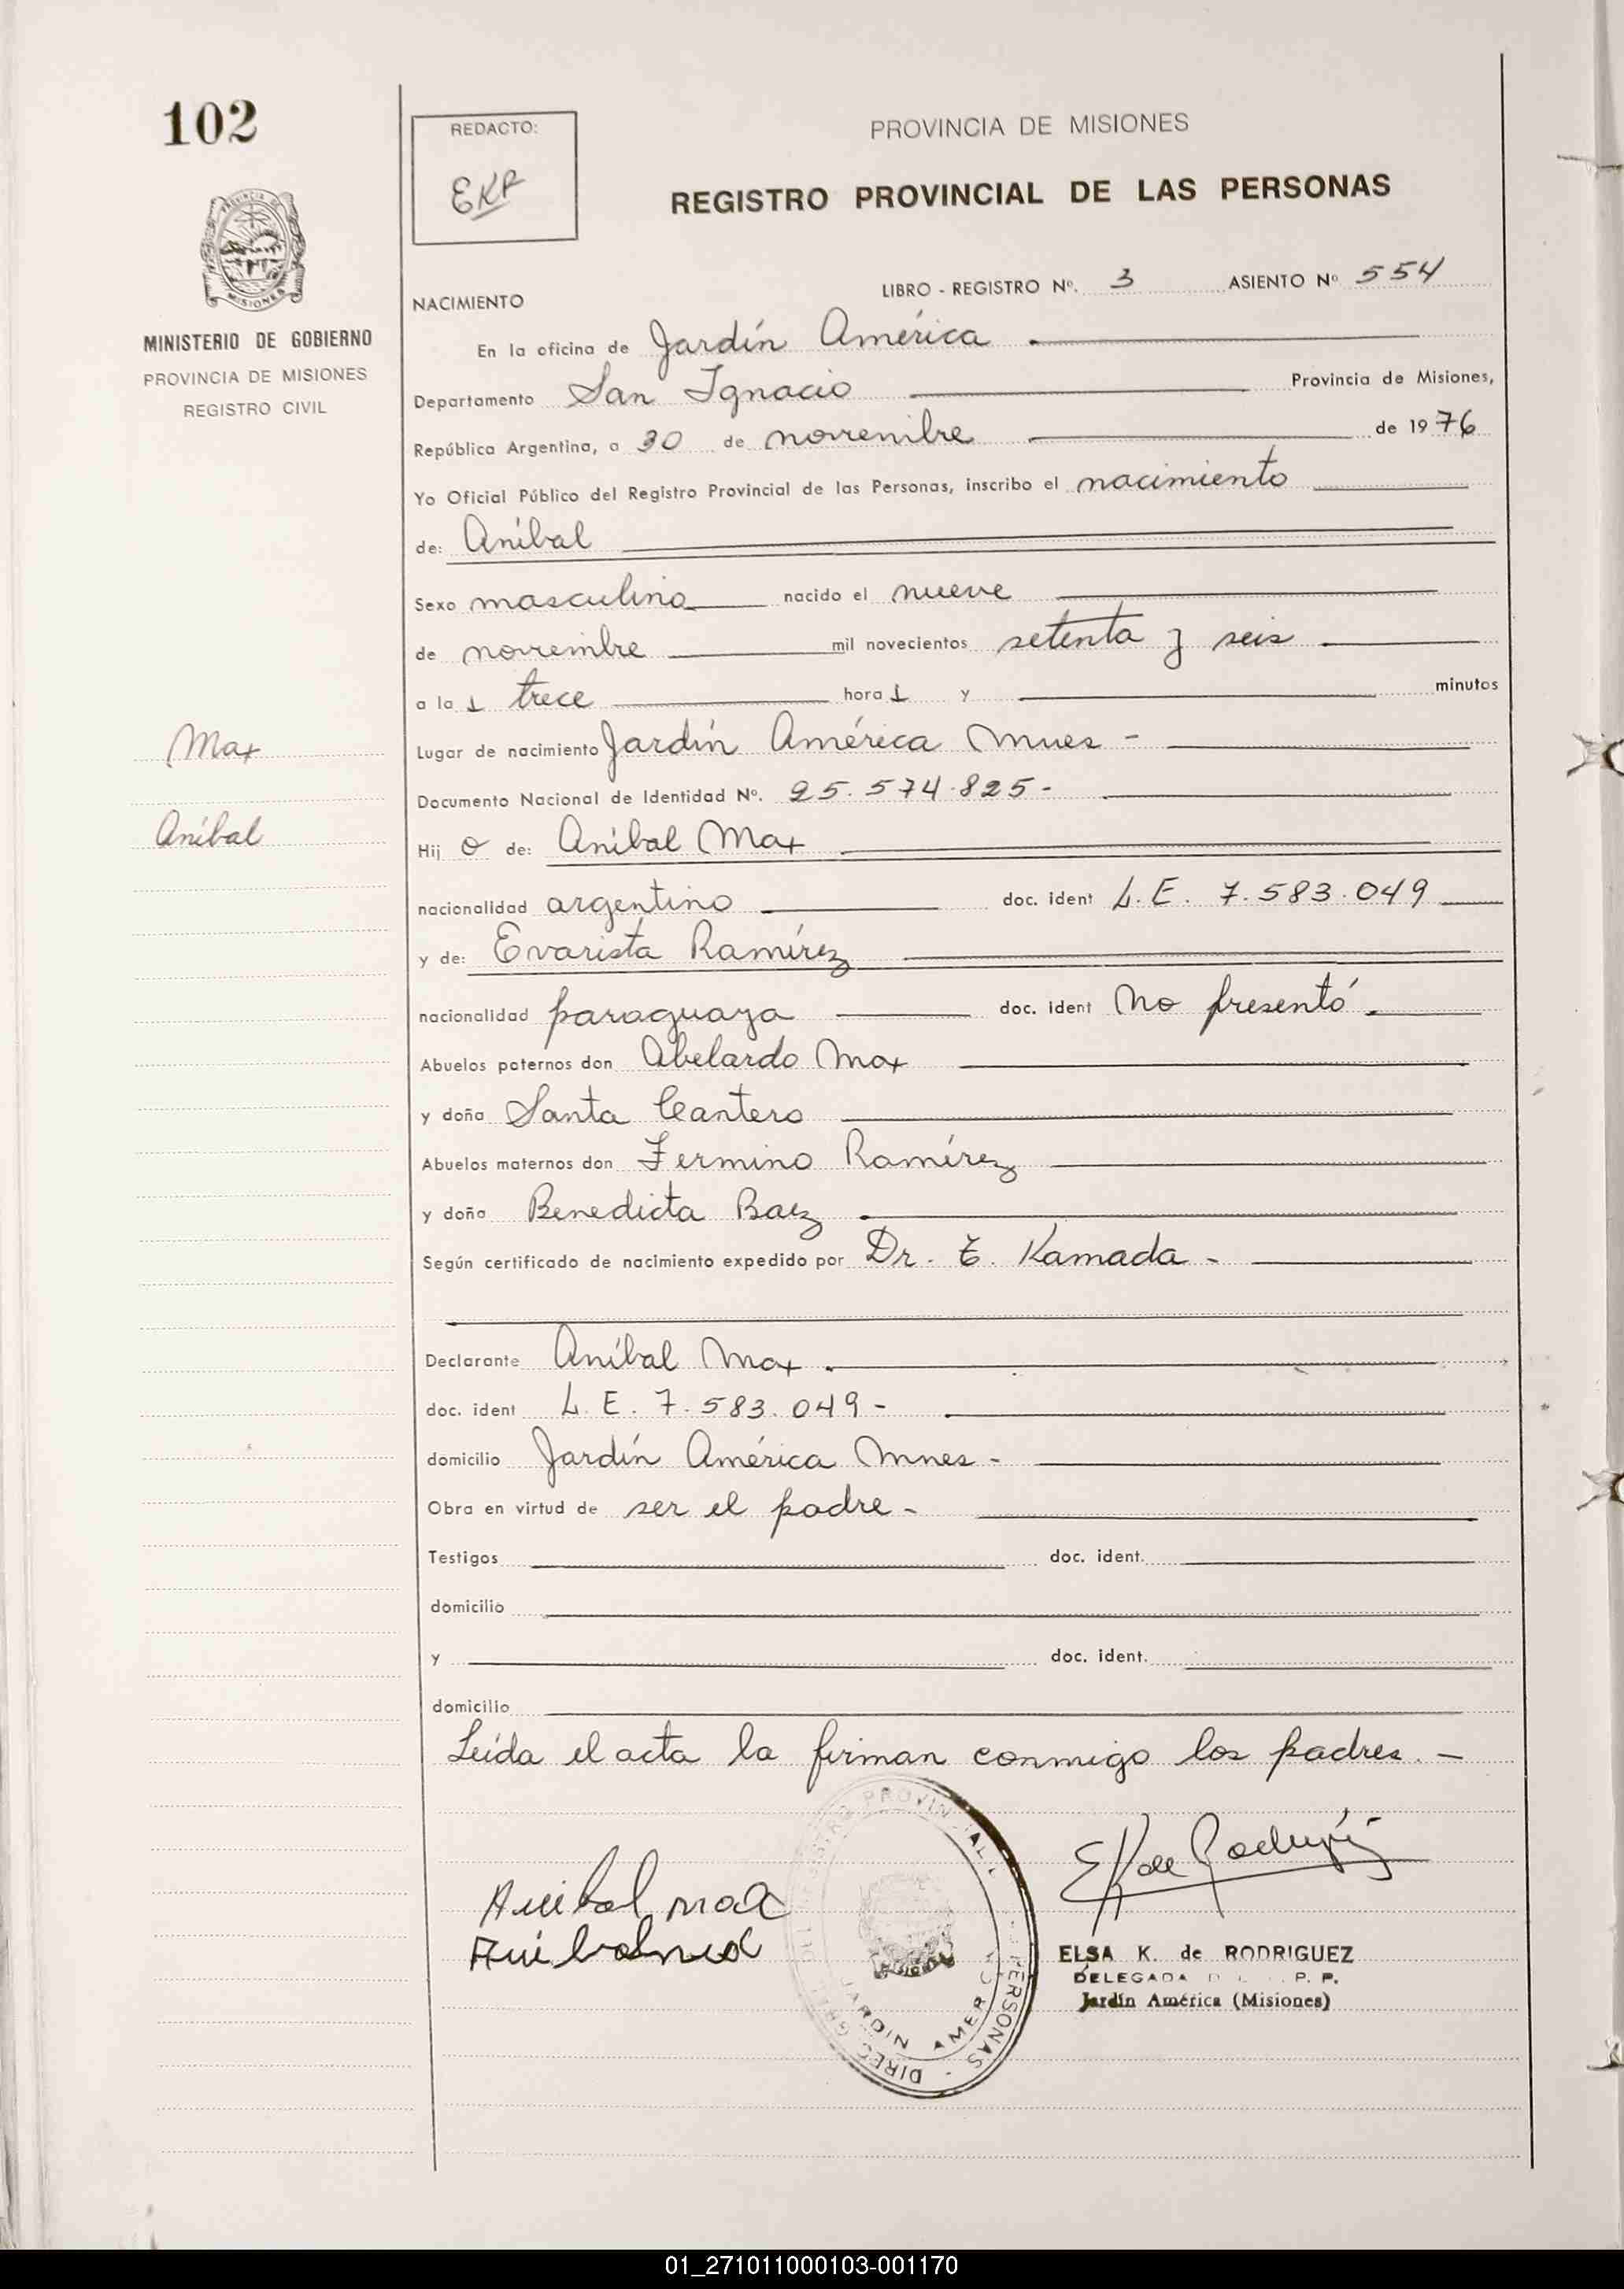 102
REDACTO:
EKR
PROVINCIA DE MISIONES
REGISTRO PROVINCIAL DE LAS PERSONAS
MISIONES
MINISTERIO DE GOBIERNO
PROVINCIA DE MISIONES
REGISTRO CIVIL
LIBRO - REGISTRO Nº. 3 ASIENTO Nº 554
NACIMIENTO
En la oficina de Jardín América
Departamento San Ignacio Provincia de Misiones,
República Argentina, a 30 de noviembre de 1976
Yo Oficial Público del Registro Provincial de las Personas, inscribo el nacimiento
de: Aníbal
Sexo masculino nacido el nueve
de noviembre mil novecientos setenta y seis
a la s trece hora s y minutos
Max
Lugar de nacimiento Jardín América Mnes -
Documento Nacional de Identidad Nº. 25.574.825-
Aníbal
Hij o de: Aníbal Max
nacionalidad argentino doc. ident L.E. 7.583.049
y de: Evarista Ramírez
nacionalidad paraguaya doc. ident No presentó.
Abuelos paternos don Abelardo Max
y doña Santa Cantero
Abuelos maternos don Fermino Ramírez
y doña Benedicta Baez
Según certificado de nacimiento expedido por Dr. E. Kamada -
Declarante Aníbal Max.
doc. ident L.E. 7.583.049-
domicilio Jardín América Mnes -
Obra en virtud de ser el padre -
Testigos doc. ident.
domicilio
y doc. ident.
domicilio
Leída el acta la firman conmigo los padres. -
Anibal max
EK de Rodriguez
ELSA K. de RODRIGUEZ
DELEGADA P. P.
Jardín América (Misiones)
JARDIN AMERICA
01_271011000103-001170